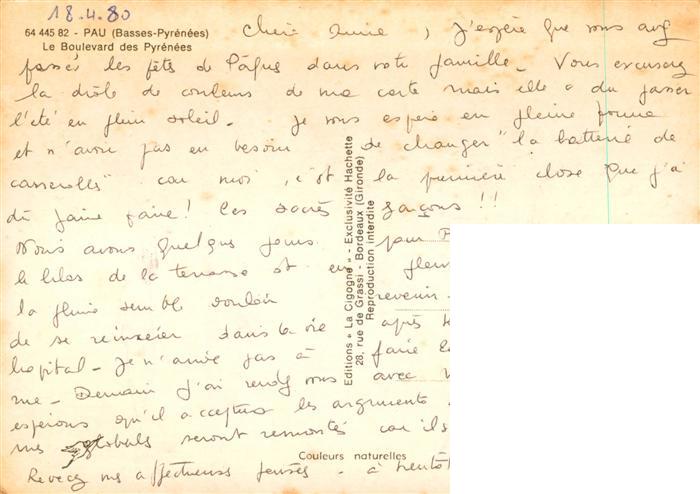 18.4.80
64 445 82 - PAU (Basses-Pyrénées)
Le Boulevard des Pyrénées
Chère Annie, j'espère que vous avez
passé les fêts de Pâques dans votre famille. Vous excuserez
la drôle de couleurs de ma carte mais elle a du passer
l'été en plein soleil. Je vous espère en pleine forme
et n'avoir pas eu besoin de changer "la batterie de
casserolles" car moi, c'est la première chose que j'ai
dû faire faire! Ces sacrés garçons!!
Nous avons quelques jours pour
le lilas de la terrasse est en fleur
la pluie semble vouloir revenir.
de se réinsérer dans la vie après
hôpital - Je n'arrive pas à faire
me - Demain j'ai rendez vous avec
espérons qu'il acceptera les arguments
mes globuls seront remontés car ils
Recevez mes affectueuses pensées - à bientôt
Editions « La Cigogne » - Exclusivité Hachette
28, rue de Grassi - Bordeaux (Gironde)
Reproduction interdite
Couleurs naturelles